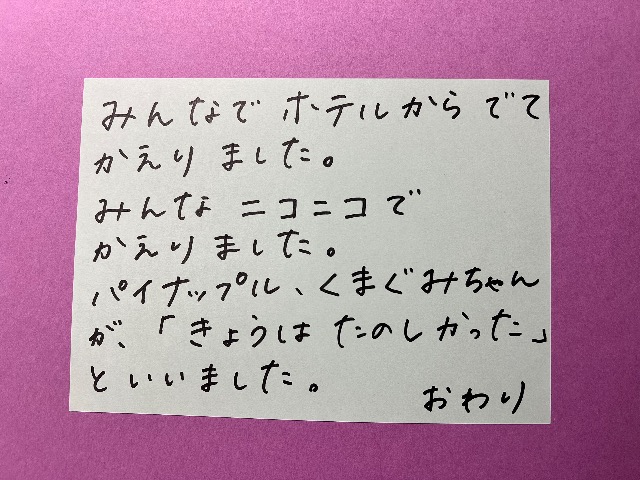 みんなで ホテルから でて
かえりました。
みんな ニコニコで
かえりました。
パイナップル、くまぐみちゃん
が、「きょうは たのしかった」
といいました。
おわり